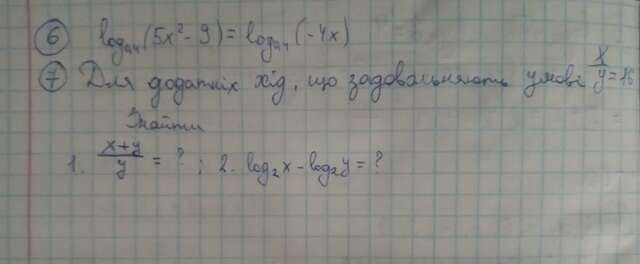 6 log₄₄(5x²-9) = log₄₄(-4x)
7 Для додатніх х і д, що задовальняють умові x/y = 16
Знайти
1. (x+y)/y = ? ; 2. log₂x - log₂y = ?